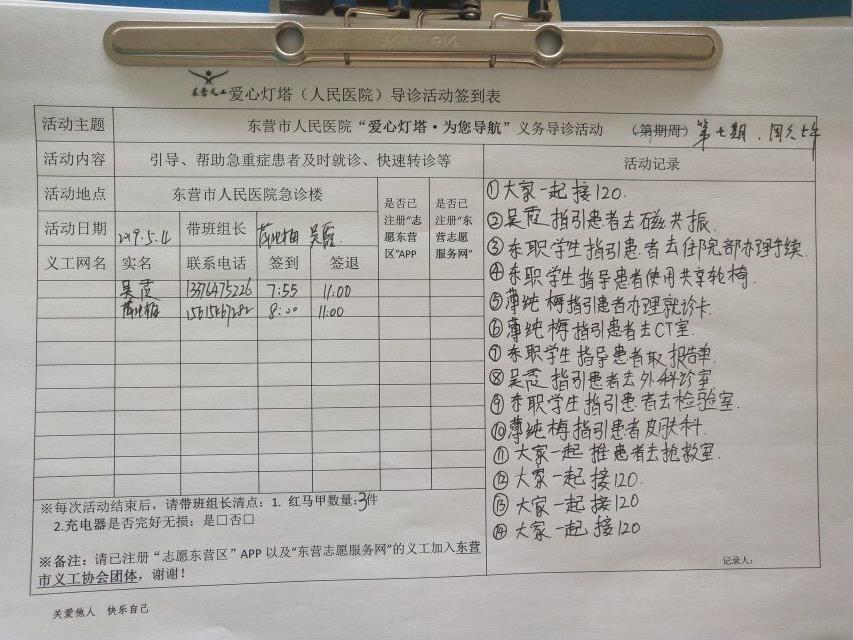 东营义工 爱心灯塔（人民医院）导诊活动签到表
活动主题 东营市人民医院“爱心灯塔·为您导航”义务导诊活动 （第期周） 第七期.周六上午
活动内容 引导、帮助急重症患者及时就诊、快速转诊等
活动地点 东营市人民医院急诊楼
活动日期 2019.5.4 带班组长 薄纯梅 吴霞
是否已注册“志愿东营区”APP
是否已注册“东营志愿服务网”
义工网名 实名 联系电话 签到 签退
吴霞 7:55 11:00
薄纯梅 8:00 11:00
※每次活动结束后，请带班组长清点：1. 红马甲数量:3件
2.充电器是否完好无损：是□否□
※备注：请已注册“志愿东营区”APP 以及“东营志愿服务网”的义工加入东营
市义工协会团体，谢谢！
活动记录
①大家一起接120.
②吴霞指引患者去磁共振.
③东职学生指引患者去住院部办理手续.
④东职学生指导患者使用共享轮椅.
⑤薄纯梅指引患者办理就诊卡.
⑥薄纯梅指引患者去CT室.
⑦东职学生指导患者取报告单.
⑧吴霞指引患者去外科诊室.
⑨东职学生指引患者去检验室.
⑩薄纯梅指引患者皮肤科.
⑪大家一起推患者去抢救室.
⑫大家一起接120.
⑬大家一起接120
⑭大家一起接120
记录人：
关爱他人 快乐自己